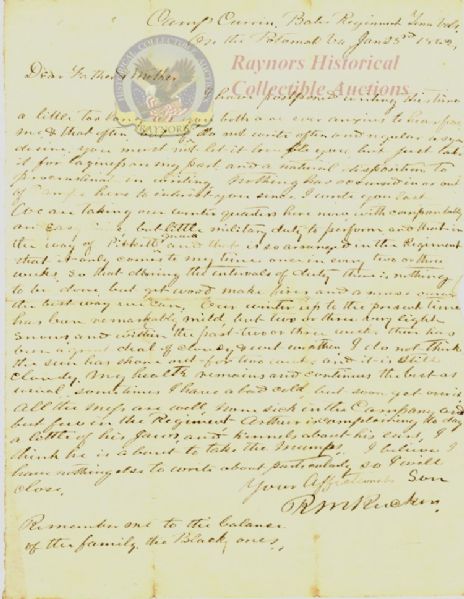 Camp Currin, Bate Regiment Tenn Vols,
On the Potomac Va Jan 23rd 1862,
Raynors Historical
Collectible Auctions
HISTORICAL COLLECTIBLE AUCTIONS
RAYNORS
Dear Father & Mother
I have postponed writing this time
a little too long both are ever anxious to hear from
me & that often do not write often and regular as you
desire, you must not let it you, but just take
it for laziness on my part, and a natural disposition to
procrastinate in writing. Nothing has occurred in or out
of Camp here to interest you since I wrote you last
We are taking our winter quarters here now, with comparatively
an easy time, but little military duty to perform and that in
the way of Picket and that is so arranged in the Regiment
that it only comes to my time once in every two or three
weeks, so that during the intervals of duty there is nothing
to be done but get wood make fires and amuse
the best way we can. Our winter up to the present time
has been remarkably mild, but two or three very light
snows, and within the past two or three weeks there has
been a great deal of cloudy & wet weather I do not think
the sun has shone out for two weeks and it is still
cloudy. My health remains and continues the best as
usual, sometimes I have a bad cold, but soon get over it
All the mess are well, none sick in the Company, and
but few in the Regiment Arthur is complaining to day
a little of his Jaws, and kernels about his ears, I
think he is about to take the Mumps. I believe I
have nothing else to write about particularly, so I will
close.
Your Affectionate Son
R M Rucker
Remember me to the balance
of the family, the Black ones,